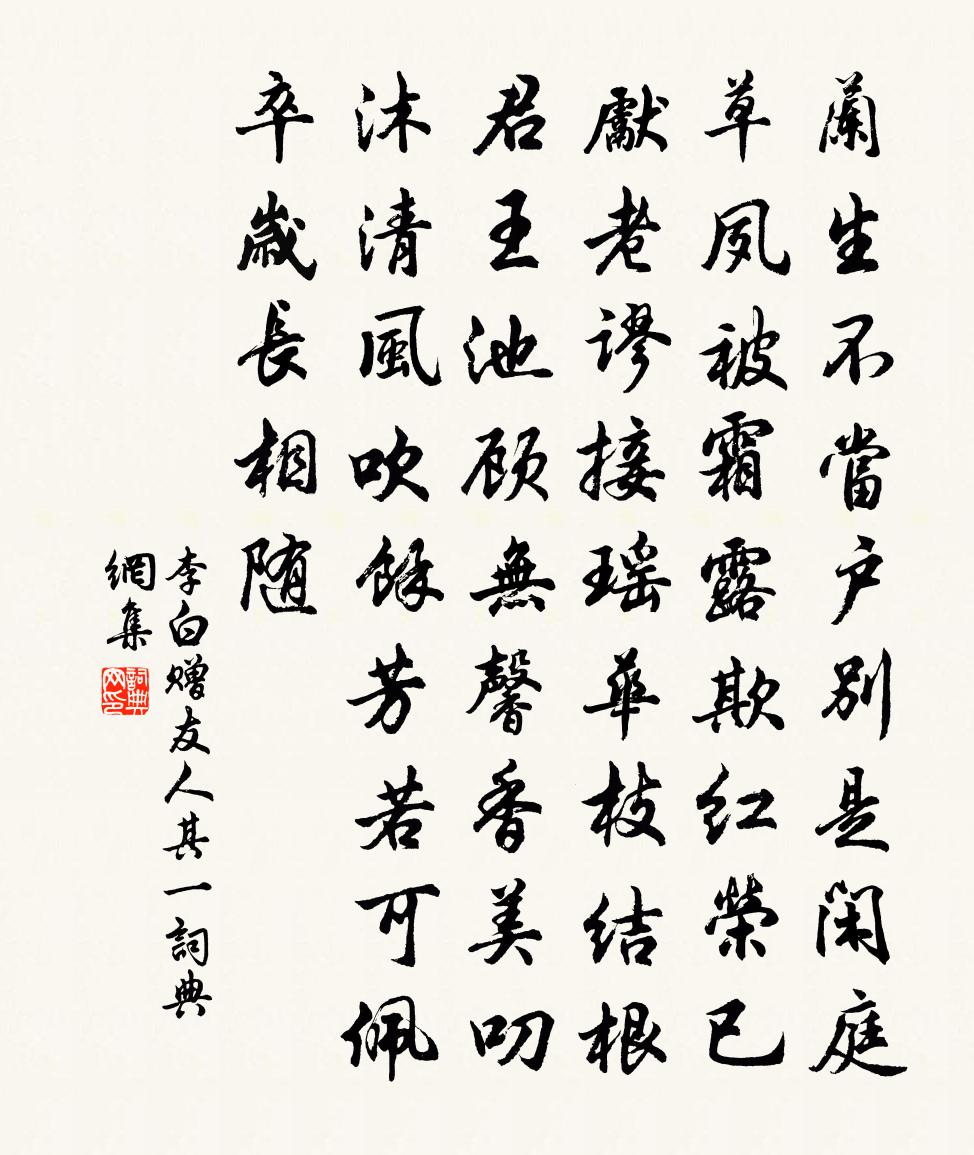 蘭生不當户別是閑庭
草夙被霜露欺紅榮已
獻老謬接瑶華枝結根
君王池顧無馨香美叨
沐清風吹餘芳若可佩
卒歲長相隨
李白赠友人其一詞典
網集
詞典
网印